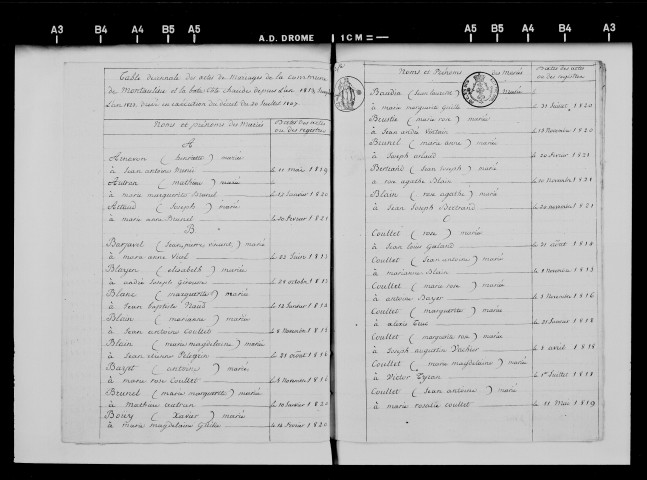 A3 B4 A4 B5 A5
A.D. DROME 1 CM =
A5 B5 A4 B4 A3
Table décennale des actes de mariages de la commune
de
L'an 1823. dressé en exécution du décret du 20 Juillet 1807.
Noms et prénoms des Mariés
Dates des actes
ou des registres
A
(henriette) mariée
à Jean antoine
le 11 mai 1819
Autran (mathieu) marié
à marie marguerite Brunel le 10 Janvier 1820
Artaud (Joseph) marié
à marie anne Brunel le 20 février 1821
B
Barjavel (Jean pierre vincent) marié
à marie anne le 22 Juin 1813
Blayer (elisabeth) mariée
à Joseph le 28 octobre 1813
Blanc (marguerite) mariée
à Jean baptiste le 12 Janvier 1814
Blain (marianne) mariée
à Jean antoine Coullet le 8 Novembre 1813
Blain (marie magdelaine) mariée
à Jean etienne Pelegrin le 21 août 1816
Bayet (antoine) marié
à marie rose Coullet le 5 Novembre 1816
Brunel (marie marguerite) mariée
à Mathieu autran le 10 Janvier 1820
Boury (Xavier) marié
à marie magdelaine le 14 février 1820
Noms et Prénoms des Mariés
Dates des actes
ou des registres
(Jean laurent) marié
à marie marguerite le 31 Janvier 1820
(marie rose) mariée
à Jean andré le 13 Novembre 1820
Brunel (marie anne) mariée
à Joseph artaud le 20 février 1821
Bertrand (Jean Joseph) marié
à rose agathe Blain le 20 novembre 1821
Blain (rose agathe) mariée
à Jean Joseph Bertrand le 20 novembre 1821
C
Coullet (rose) mariée
à Jean louis Galand le 21 août 1815
Coullet (Jean antoine) marié
à marianne Blain le 8 Novembre 1813
Coullet (marie rose) mariée
à antoine Bayet le 5 Novembre 1816
Coullet (marguerite) mariée
à alexis le 21 Janvier 1818
Coullet (marguerite rose) mariée
à Joseph augustin le 8 avril 1818
Coullet (marie magdelaine) mariée
à Victor Eyran le 1er Juillet 1818
Coullet (Jean antoine) marié
à marie rosalie coullet le 11 Mai 1819